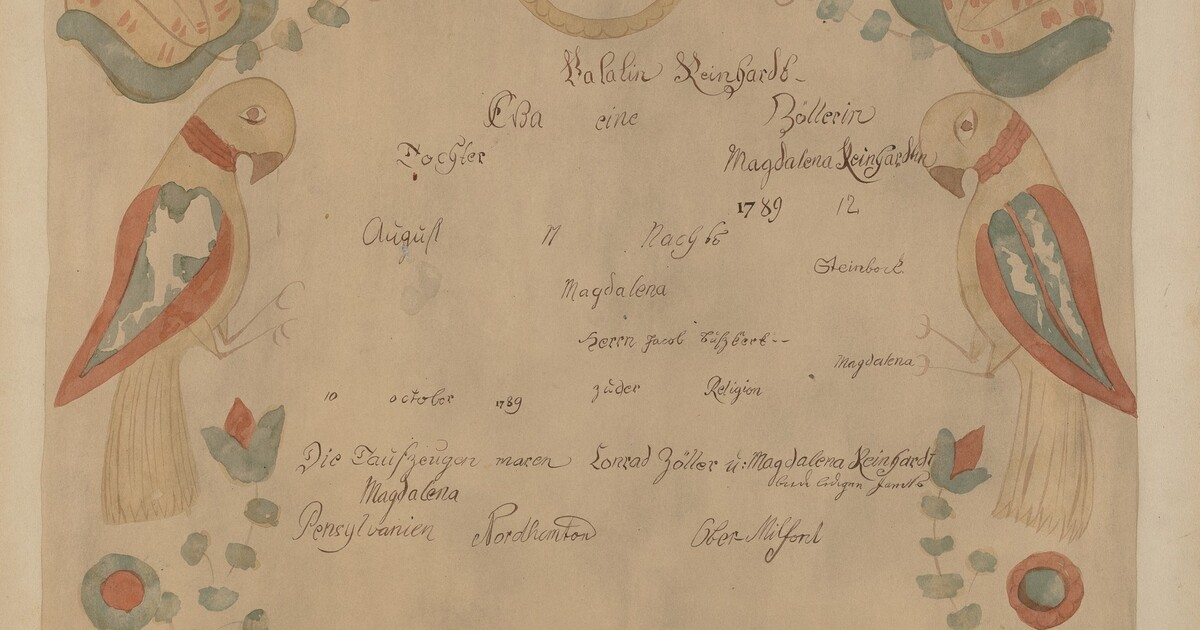 Valatin Reinhardt
Eva eine Zöllerin
Tochter Magdalena Reinhardtin
1789 12
August 11 Nachts
Steinbock
Magdalena
Herrn Jacob
Magdalena
10 october 1789 zuder Religion
Die Taufzeugen waren Conrad Zöller u: Magdalena Reinhardt
Magdalena
Pensylvanien Nordhamton Ober Milford